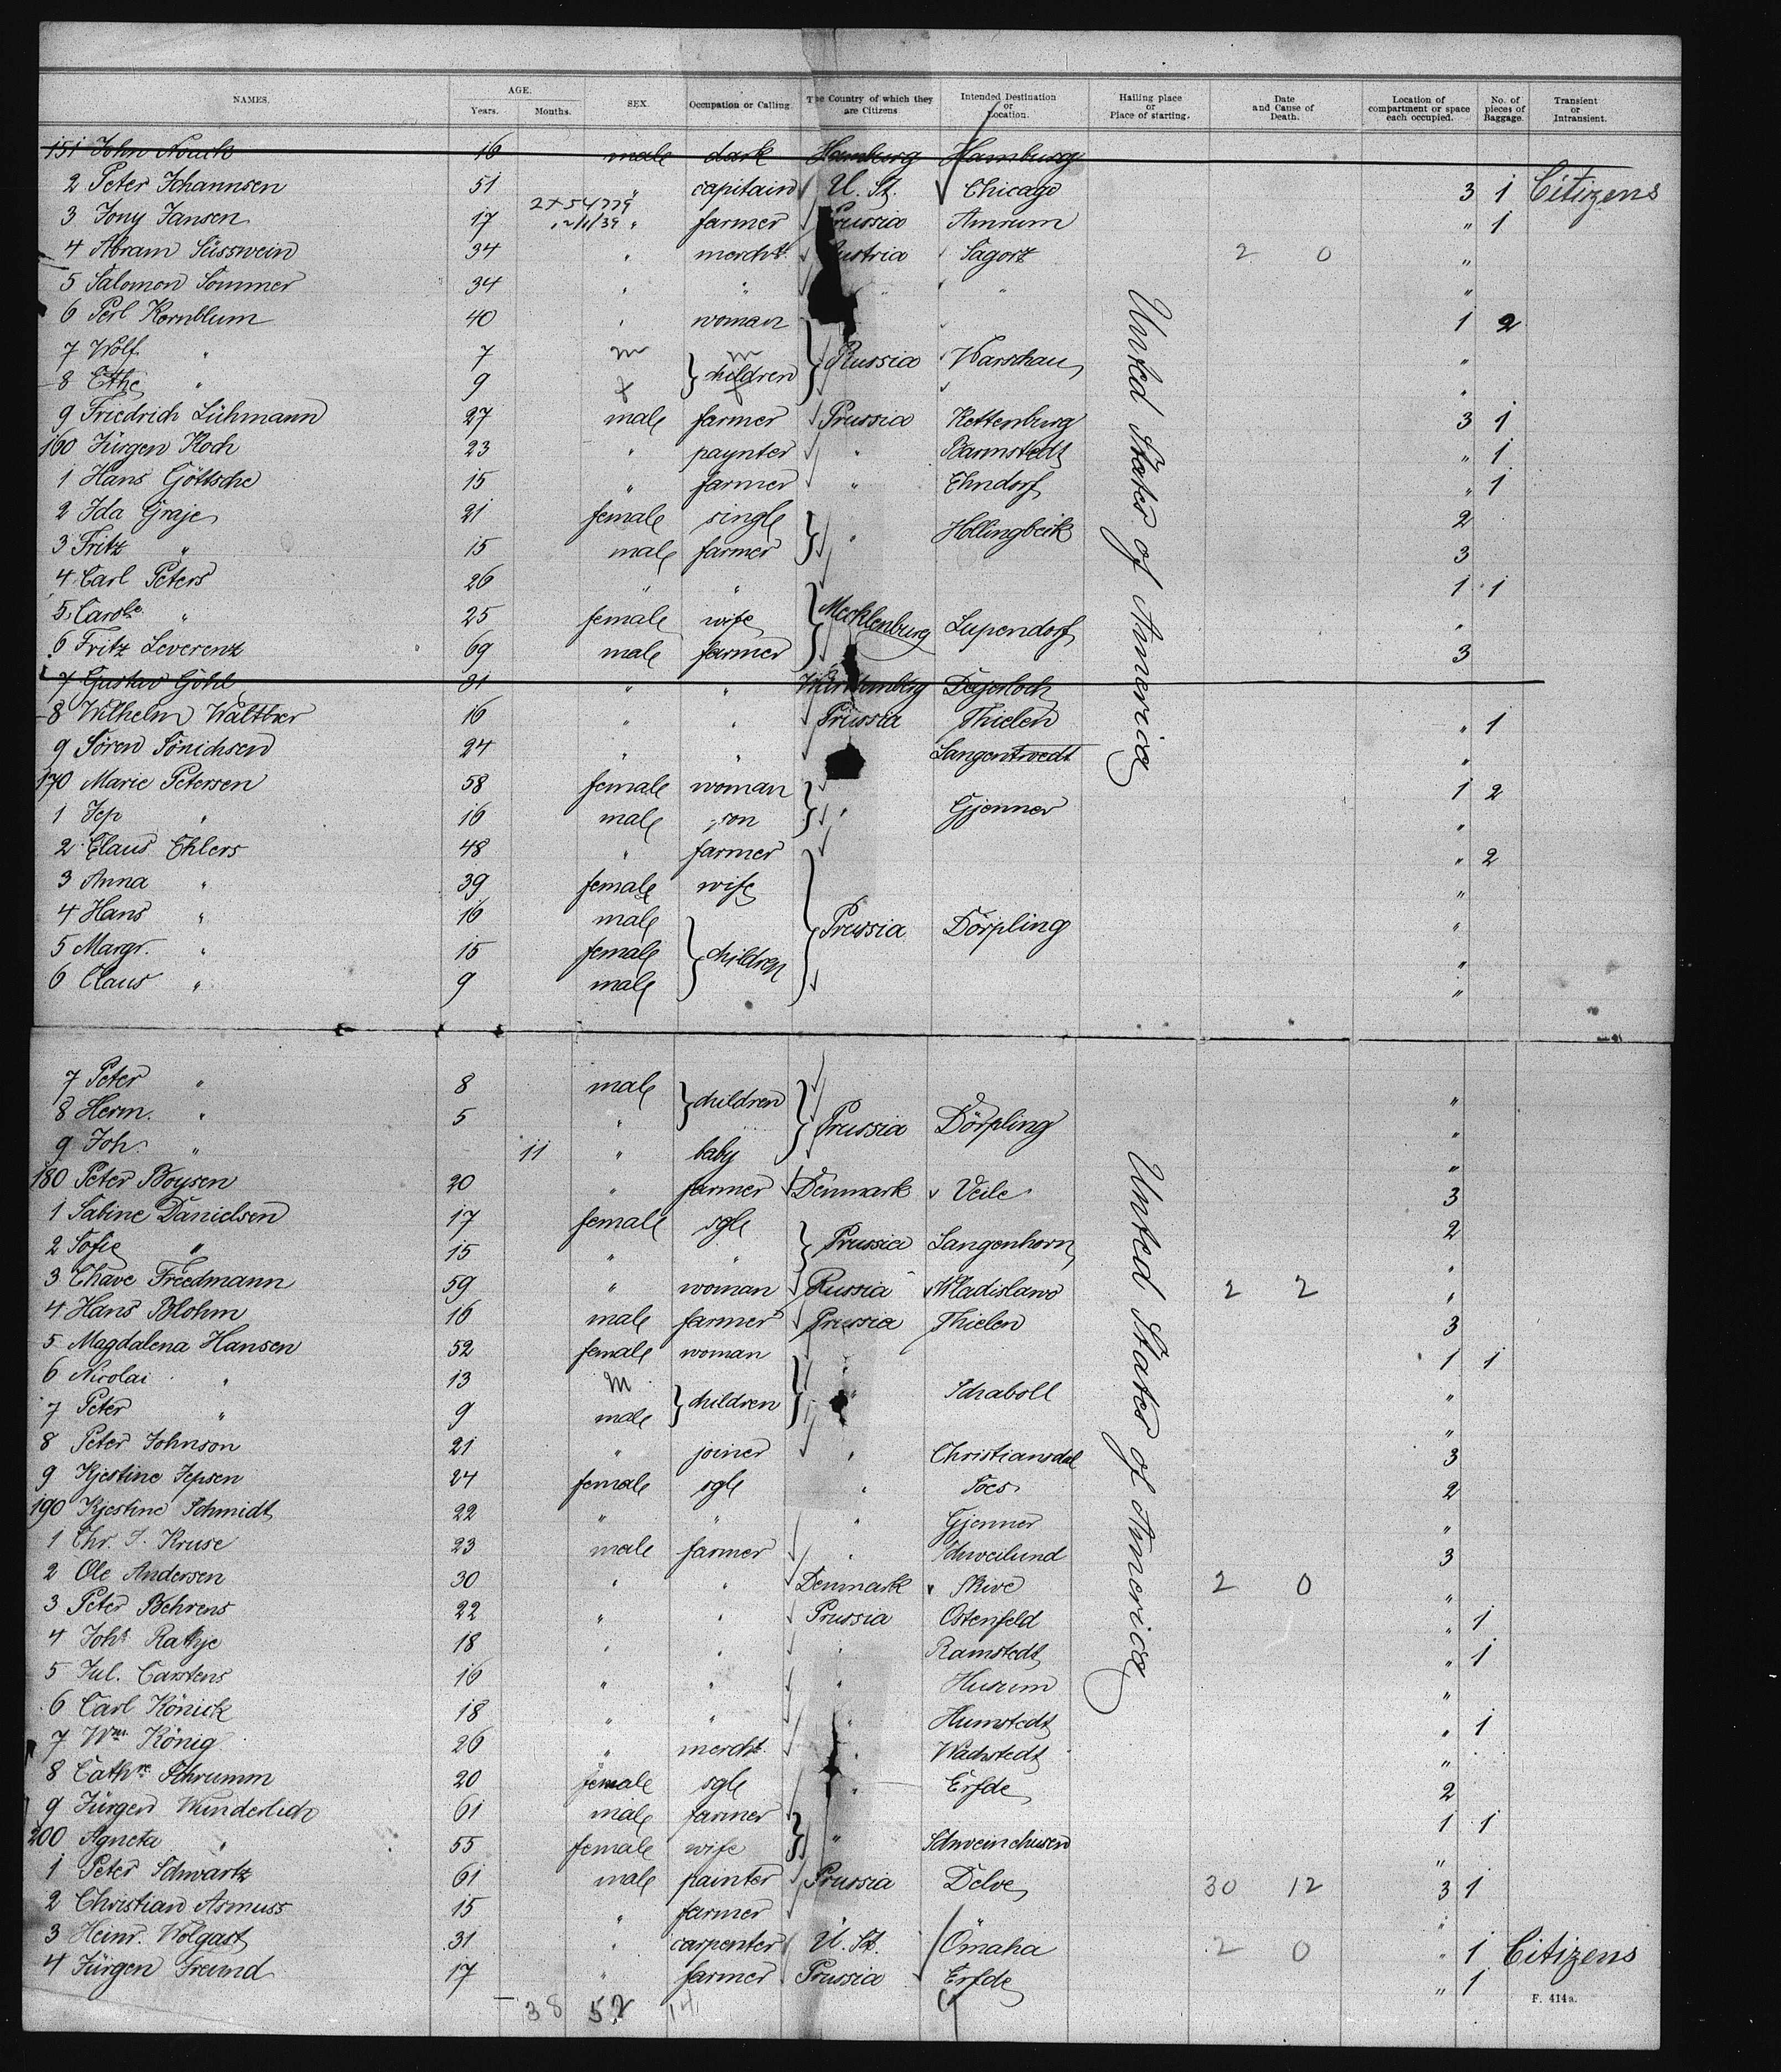 NAMES. AGE. Years. Months. SEX. Occupation or Calling. The Country of which they are Citizens Intended Destination or Location. Hailing place or Place of starting. Date and Cause of Death. Location of compartment or space each occupied. No. of pieces of Baggage. Transient or Intransient.
151 John Nouck 16 male clark Hamburg Hamburg
2 Peter Johannsen 51 " capitain U. St. Chicago 3 1 Citizens
2 x 54779
3 Jony Jansen 17 12/1/39 " farmer Prussia Amrum " 1
4 Abram Süsswein 34 " mercht. Austria Sagorz 2 0 "
5 Salomon Sommer 34 " " " " "
6 Perl Kornblum 40 " woman 1 2
7 Wolf " 7 m m children Russia Warschau "
8 Ethe " 9 f "
9 Friedrich Lühmann 27 male farmer Prussia Kettenburg 3 1
160 Jürgen Koch 23 " paynter " Barmstedt " 1
1 Hans Göttsche 15 " farmer " Ehndorf " 1
2 Ida Graje 21 female single " Hollingbeik 2
3 Fritz " 15 male farmer 3
4 Carl Peters 26 " " 1 1
5 Carole " 25 female wife Mecklenburg Lupendorf "
6 Fritz Leverenz 69 male farmer 3
7 Gustav Göhl 31 " " Württemberg Degerloch
8 Wilhelm Walther 16 " " Prussia Thielen " 1
9 Sören Sönichsen 24 " " Langentwedt "
170 Marie Petersen 58 female woman 1 2
1 Jep " 16 male son " Gjenner "
2 Claus Ehlers 48 " farmer " 2
3 Anna " 39 female wife "
4 Hans " 16 male Prussia Dörpling "
5 Margr. " 15 female children "
6 Claus " 9 male "
United States of America
7 Peter " 8 male children "
8 Herm. " 5 " Prussia Dörpling "
9 Joh. " 11 " baby "
180 Peter Boysen 20 " farmer Denmark Veile 3
1 Sabine Danielsen 17 female sgle Prussia Langenhorn 2
2 Sofie " 15 " " "
3 Chave Freedmann 59 " woman Russia Wladislawo 2 2 "
4 Hans Blohm 16 male farmer Prussia Thielen 3
5 Magdalena Hansen 52 female woman " 1 1
6 Nicolai " 13 m children " Schaboll "
7 Peter " 9 male "
8 Peter Johnson 21 " joiner " Christiansdal 3
9 Kjestine Jepsen 24 female sgle " Toes 2
190 Kjestine Schmidt 22 " " " Gjenner "
1 Chr. J. Kruse 23 male farmer " Schweilund 3
2 Ole Andersen 30 " " Denmark Skive 2 0 "
3 Peter Behrens 22 " " Prussia Ostenfeld " 1
4 Johs Rathje 18 " " " Ramstedt " 1
5 Jul. Carstens 16 " " " Husum "
6 Carl Könick 18 " " " Humstedt " 1
7 Wm. König 26 " mercht. " Wachstedt "
8 Cathne Schrumm 20 female sgle " Erfde 2
9 Jürgen Wunderlich 61 male farmer 1 1
200 Agneta " 55 female wife " Schweinchusen "
1 Peter Schwartz 61 male painter Prussia Delve 30 12 3 1
2 Christian Asmuss 15 " farmer "
3 Heinr. Wolgast 31 " carpenter U. St. Omaha 2 0 " 1 Citizens
4 Jürgen Freund 17 " farmer Prussia Erfde " 1
United States of America
38 52 14
F. 414a.